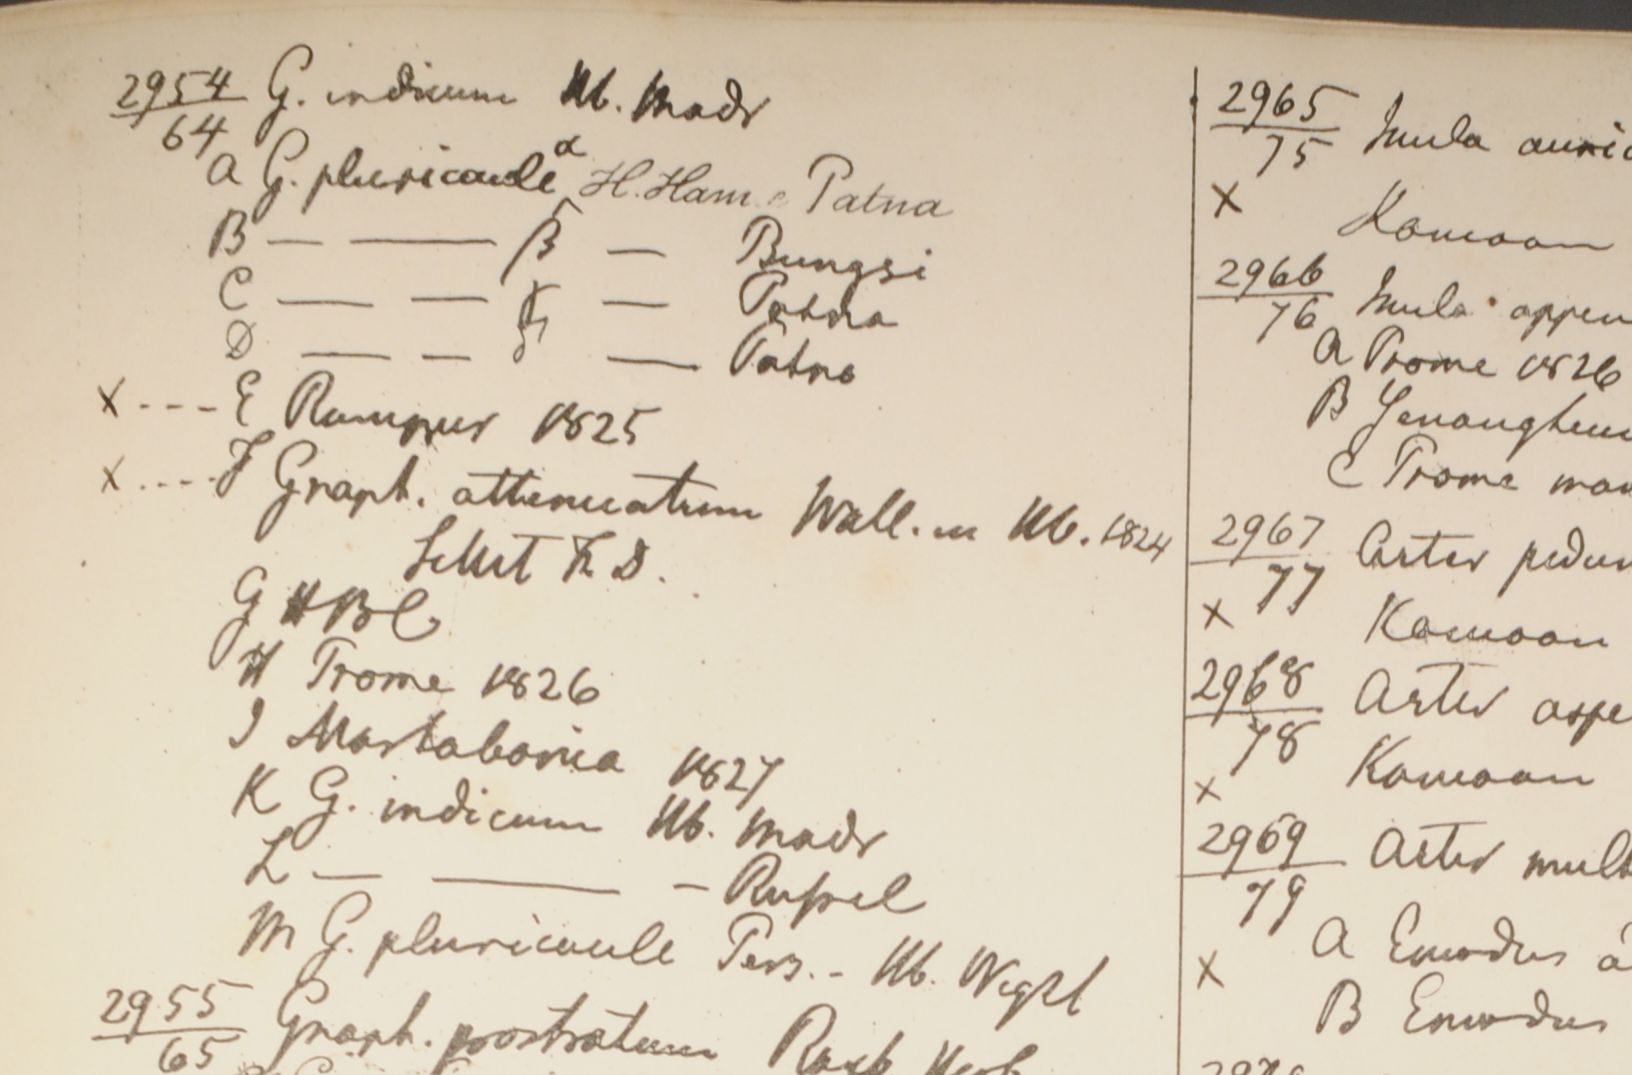 2954 G. indicum Hb. Madr
64
A G. pluricaule α H. Ham. Patna
B — — β — Bungsi
C — — γ — Patna
D — — δ — Patna
x ---- E Rampur 1825
x ---- F Graph. attenuatum Wall. in Hb. 1824
G HBC
H Prome 1826
I Martabania 1827
K G. indicum Hb. Madr
L — — —
M G. pluricaule Pers. - Hb. Wight
2955 Graph. prostratum Roxb Herb
65
2965 Inula auric
75
x Kamaon
2966 Inula appen
76
A Prome 1826
B Yenangheun
C Prome mon
2967 Aster pedun
77
x Kamaon
2968 Aster aspe
78
x Kamaon
2969 Aster mult
79
x A Emodus a
B Emodus